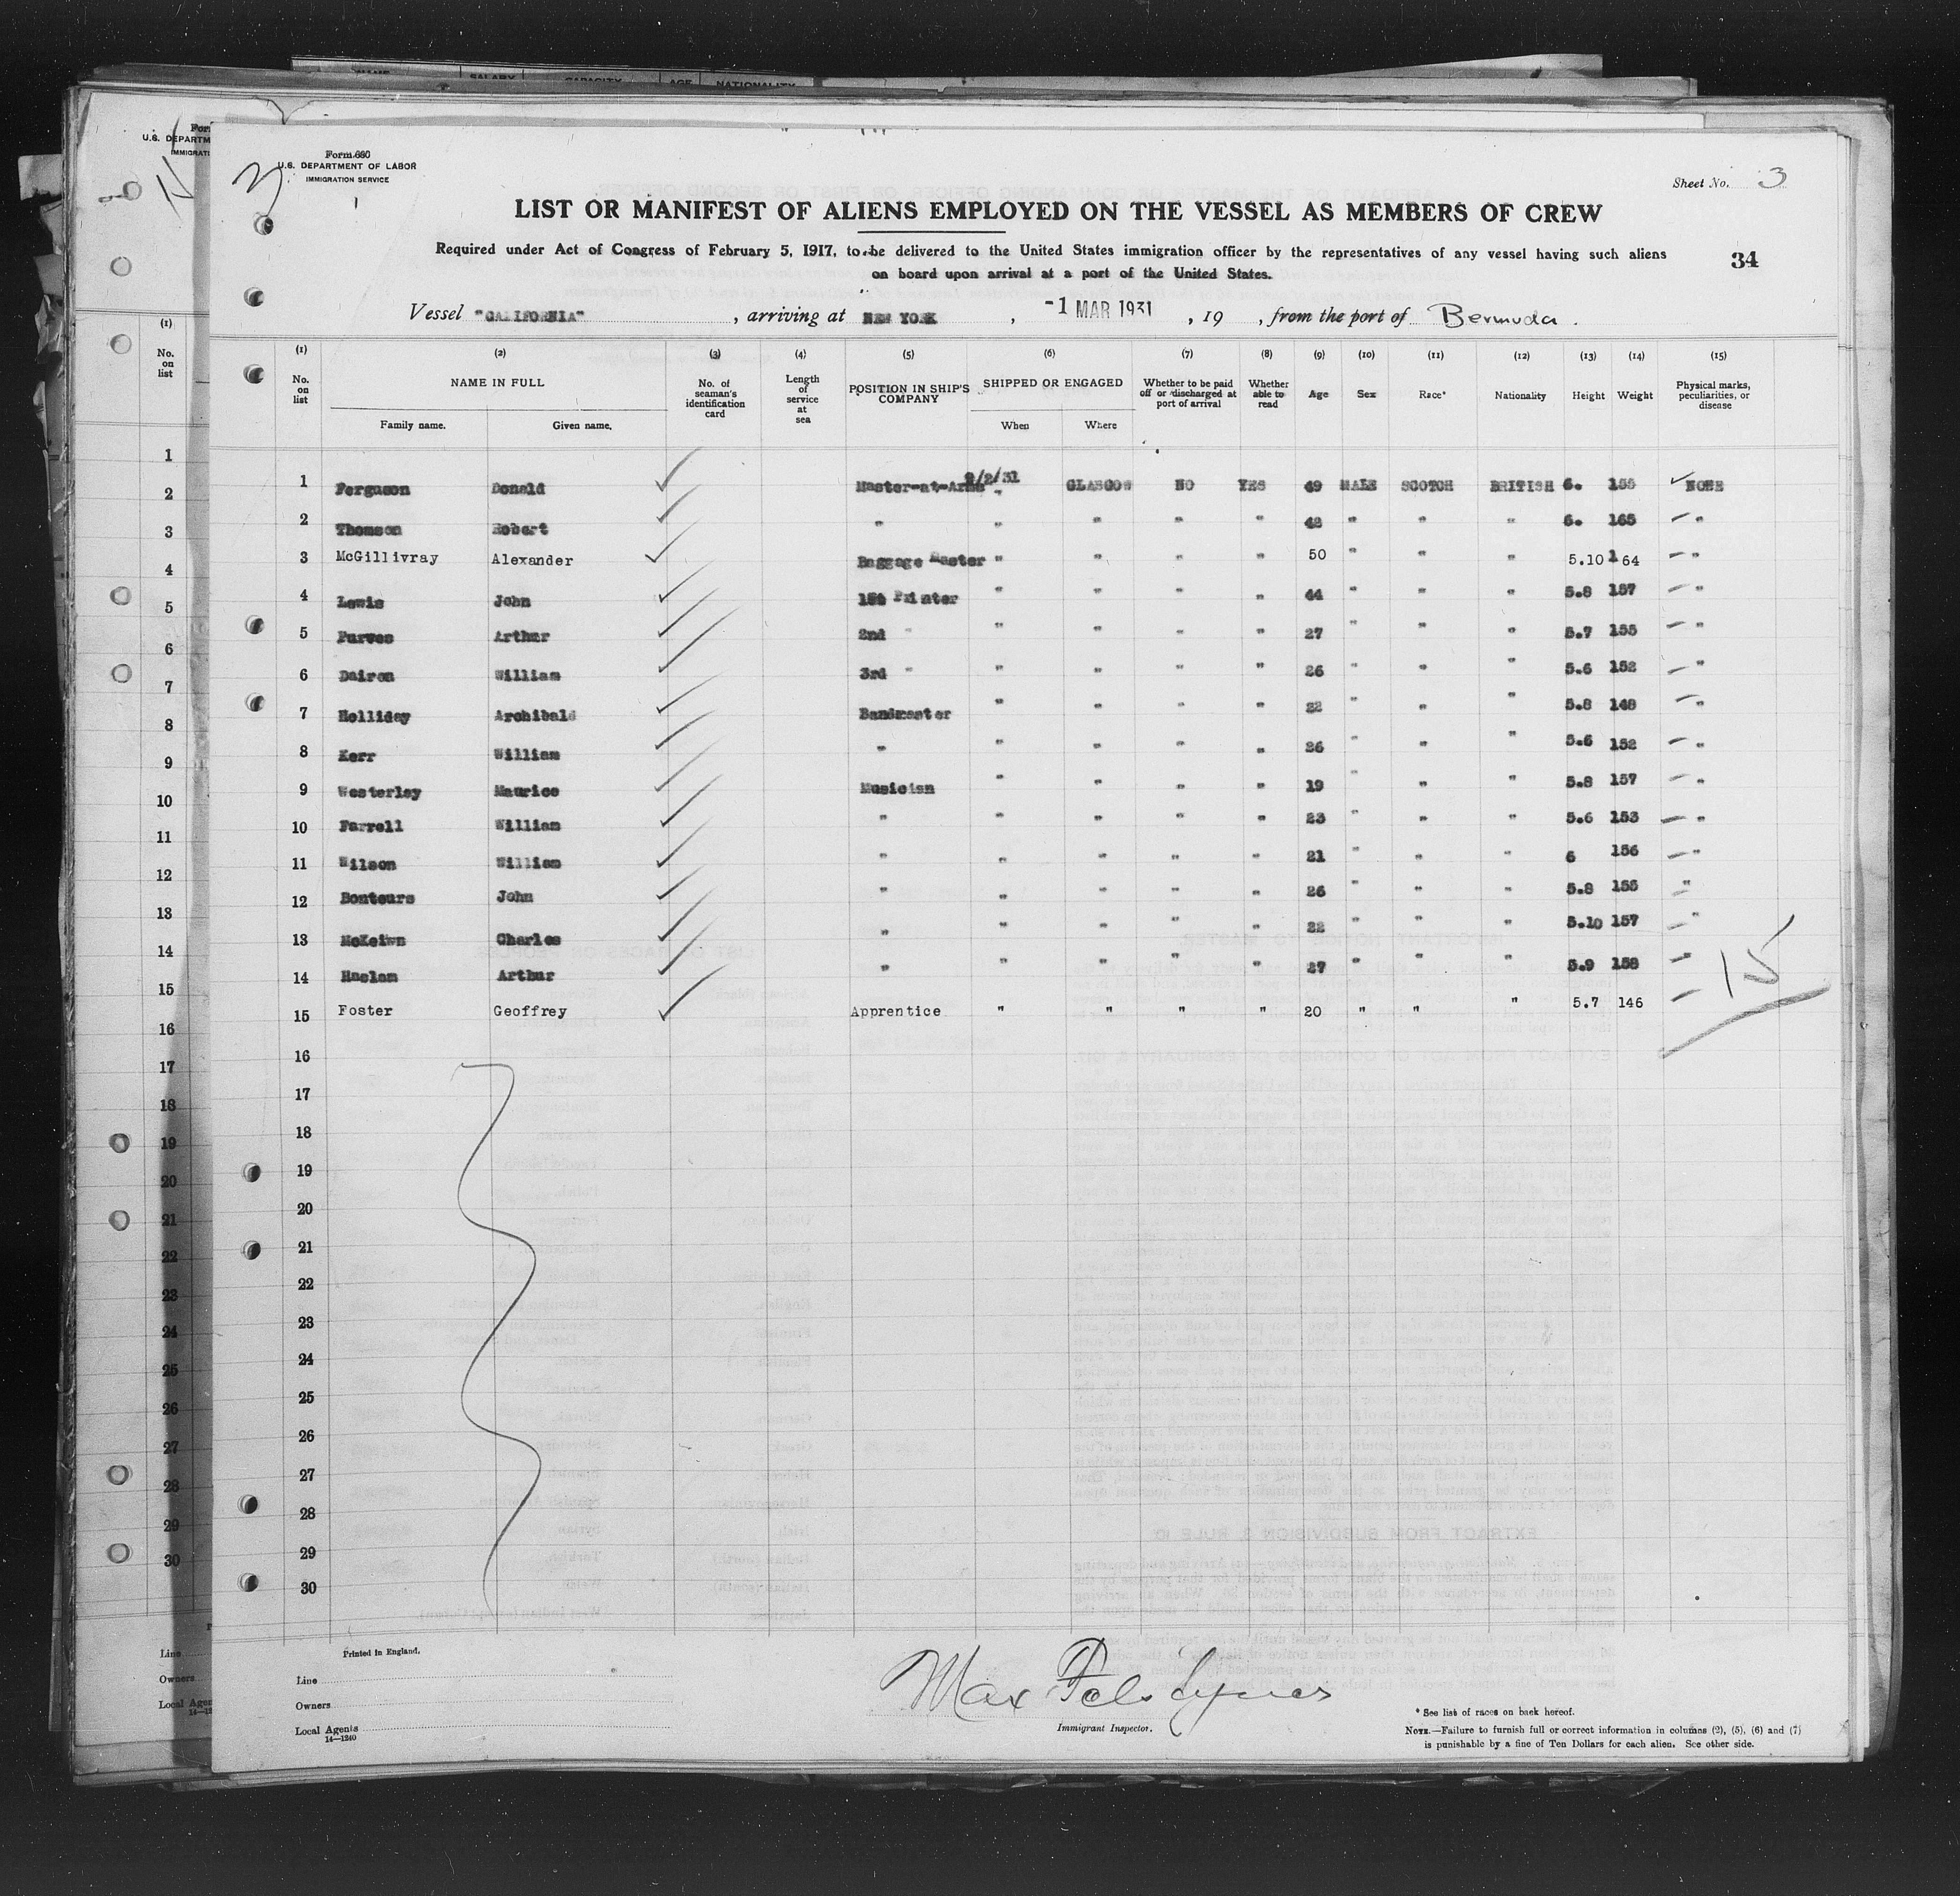 NAME SALARY CAPACITY AGE NATIONALITY
Form 680
U.S. DEPARTMENT OF LABOR
IMMIGRATION SERVICE
3
Sheet No. 3
LIST OR MANIFEST OF ALIENS EMPLOYED ON THE VESSEL AS MEMBERS OF CREW
Required under Act of Congress of February 5, 1917, to be delivered to the United States immigration officer by the representatives of any vessel having such aliens
on board upon arrival at a port of the United States.
34
Vessel "CALIFORNIA", arriving at NEW YORK, -1 MAR 1931, 19 , from the port of Bermuda.
(1) (2) (3) (4) (5) (6) (7) (8) (9) (10) (11) (12) (13) (14) (15)
No. on list NAME IN FULL No. of seaman's identification card Length of service at sea POSITION IN SHIP'S COMPANY SHIPPED OR ENGAGED Whether to be paid off or discharged at port of arrival Whether able to read Age Sex Race* Nationality Height Weight Physical marks, peculiarities, or disease
Family name. Given name. When Where
1 Ferguson Donald Master-at-Arms 2/2/31 GLASGOW NO YES 49 MALE SCOTCH BRITISH 6. 155 NONE
2 Thomson Robert " " " " " 42 " " " 6. 165 "
3 McGillivray Alexander Baggage Master " " " " 50 " " " 5.10 164 "
4 Lewis John 1st Printer " " " " 44 " " " 5.8 157 "
5 Purves Arthur 2nd " " " " " 27 " " " 5.7 155 "
6 Dairon William 3rd " " " " " 26 " " " 5.6 152 "
7 Holliday Archibald Bandmaster " " " " 22 " " " 5.8 148 "
8 Kerr William " " " " " 26 " " " 5.6 152 "
9 Westerley Maurice Musician " " " " 19 " " " 5.8 157 "
10 Farrell William " " " " " 23 " " " 5.6 153 "
11 Wilson William " " " " " 21 " " " 6 156 "
12 Bonteurs John " " " " " 26 " " " 5.8 155 "
13 McKeiwn Charles " " " " " 22 " " " 5.10 157 "
14 Haslam Arthur " " " " " 27 " " " 5.9 158 "
15 Foster Geoffrey Apprentice " " " " 20 " " " 5.7 146
15
16
17
18
19
20
21
22
23
24
25
26
27
28
29
30
Printed in England.
Line
Owners
Local Agents
14—1240
Max
Immigrant Inspector.
* See list of races on back hereof.
NOTE.—Failure to furnish full or correct information in columns (2), (5), (6) and (7)
is punishable by a fine of Ten Dollars for each alien. See other side.